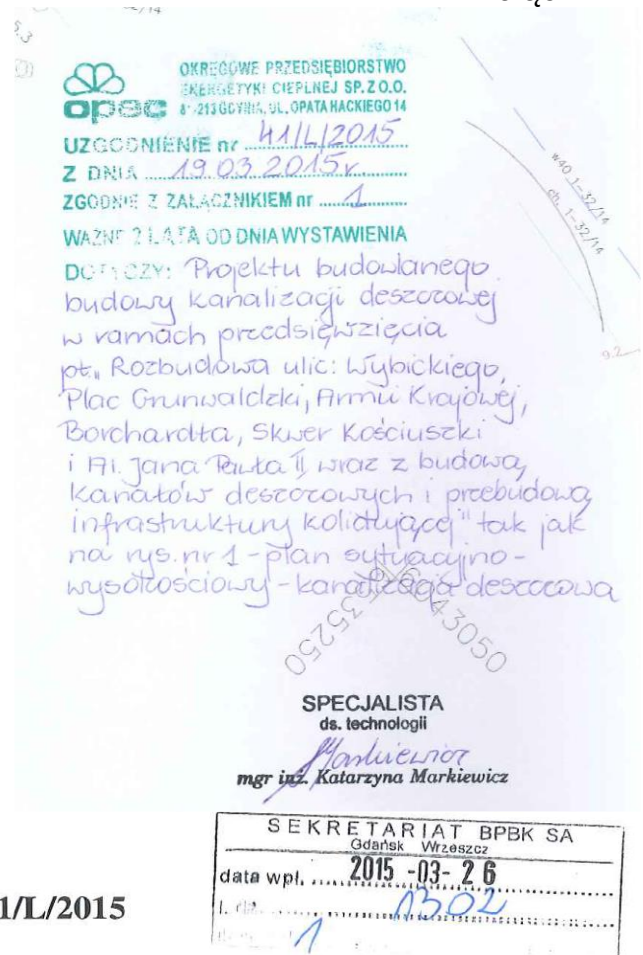 OKRĘGOWE PRZEDSIĘBIORSTWO
ENERGETYKI CIEPLNEJ SP. Z O.O.
81-213 GDYNIA, UL. OPATA HACKIEGO 14
opec
UZGODNIENIE nr 41/L/2015
Z DNIA 19.03.2015r.
ZGODNIE Z ZAŁĄCZNIKIEM nr 1
WAŻNE 2 LATA OD DNIA WYSTAWIENIA
DOTYCZY: Projektu budowlanego
budowy kanalizacji deszczowej
w ramach przedsięwzięcia
pt. „Rozbudowa ulic: Wybickiego,
Plac Grunwaldzki, Armii Krajowej,
Borchardta, Skwer Kościuszki
i Al. Jana Pawła II wraz z budową
kanałów deszczowych i przebudową
infrastruktury kolidującej" tak jak
na rys. nr 1 - plan sytuacyjno-
wysokościowy - kanalizacja deszczowa
w40 1-32/14
ch. 1-32/14
9.2
6043050
35250
SPECJALISTA
ds. technologii
Markiewicz
mgr inż. Katarzyna Markiewicz
SEKRETARIAT BPBK SA
Gdańsk Wrzeszcz
data wpł. 2015 -03- 26
l. dz. 1302
1
1/L/2015